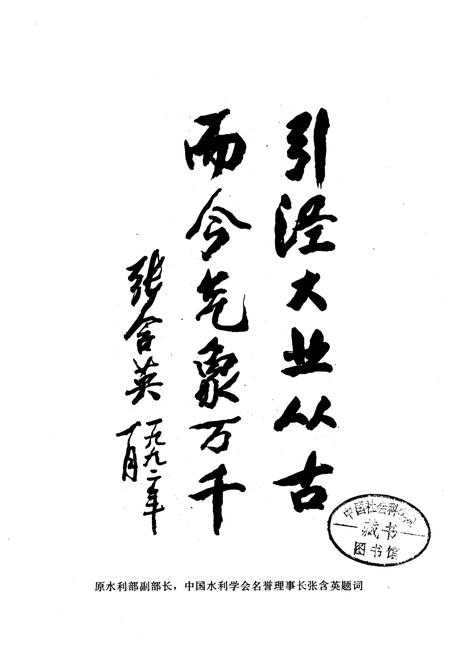 引泾大业从古
而今气象万千
张含英
一九九二年
一月
中国社会科
藏书
图书馆
原水利部副部长，中国水利学会名誉理事长张含英题词